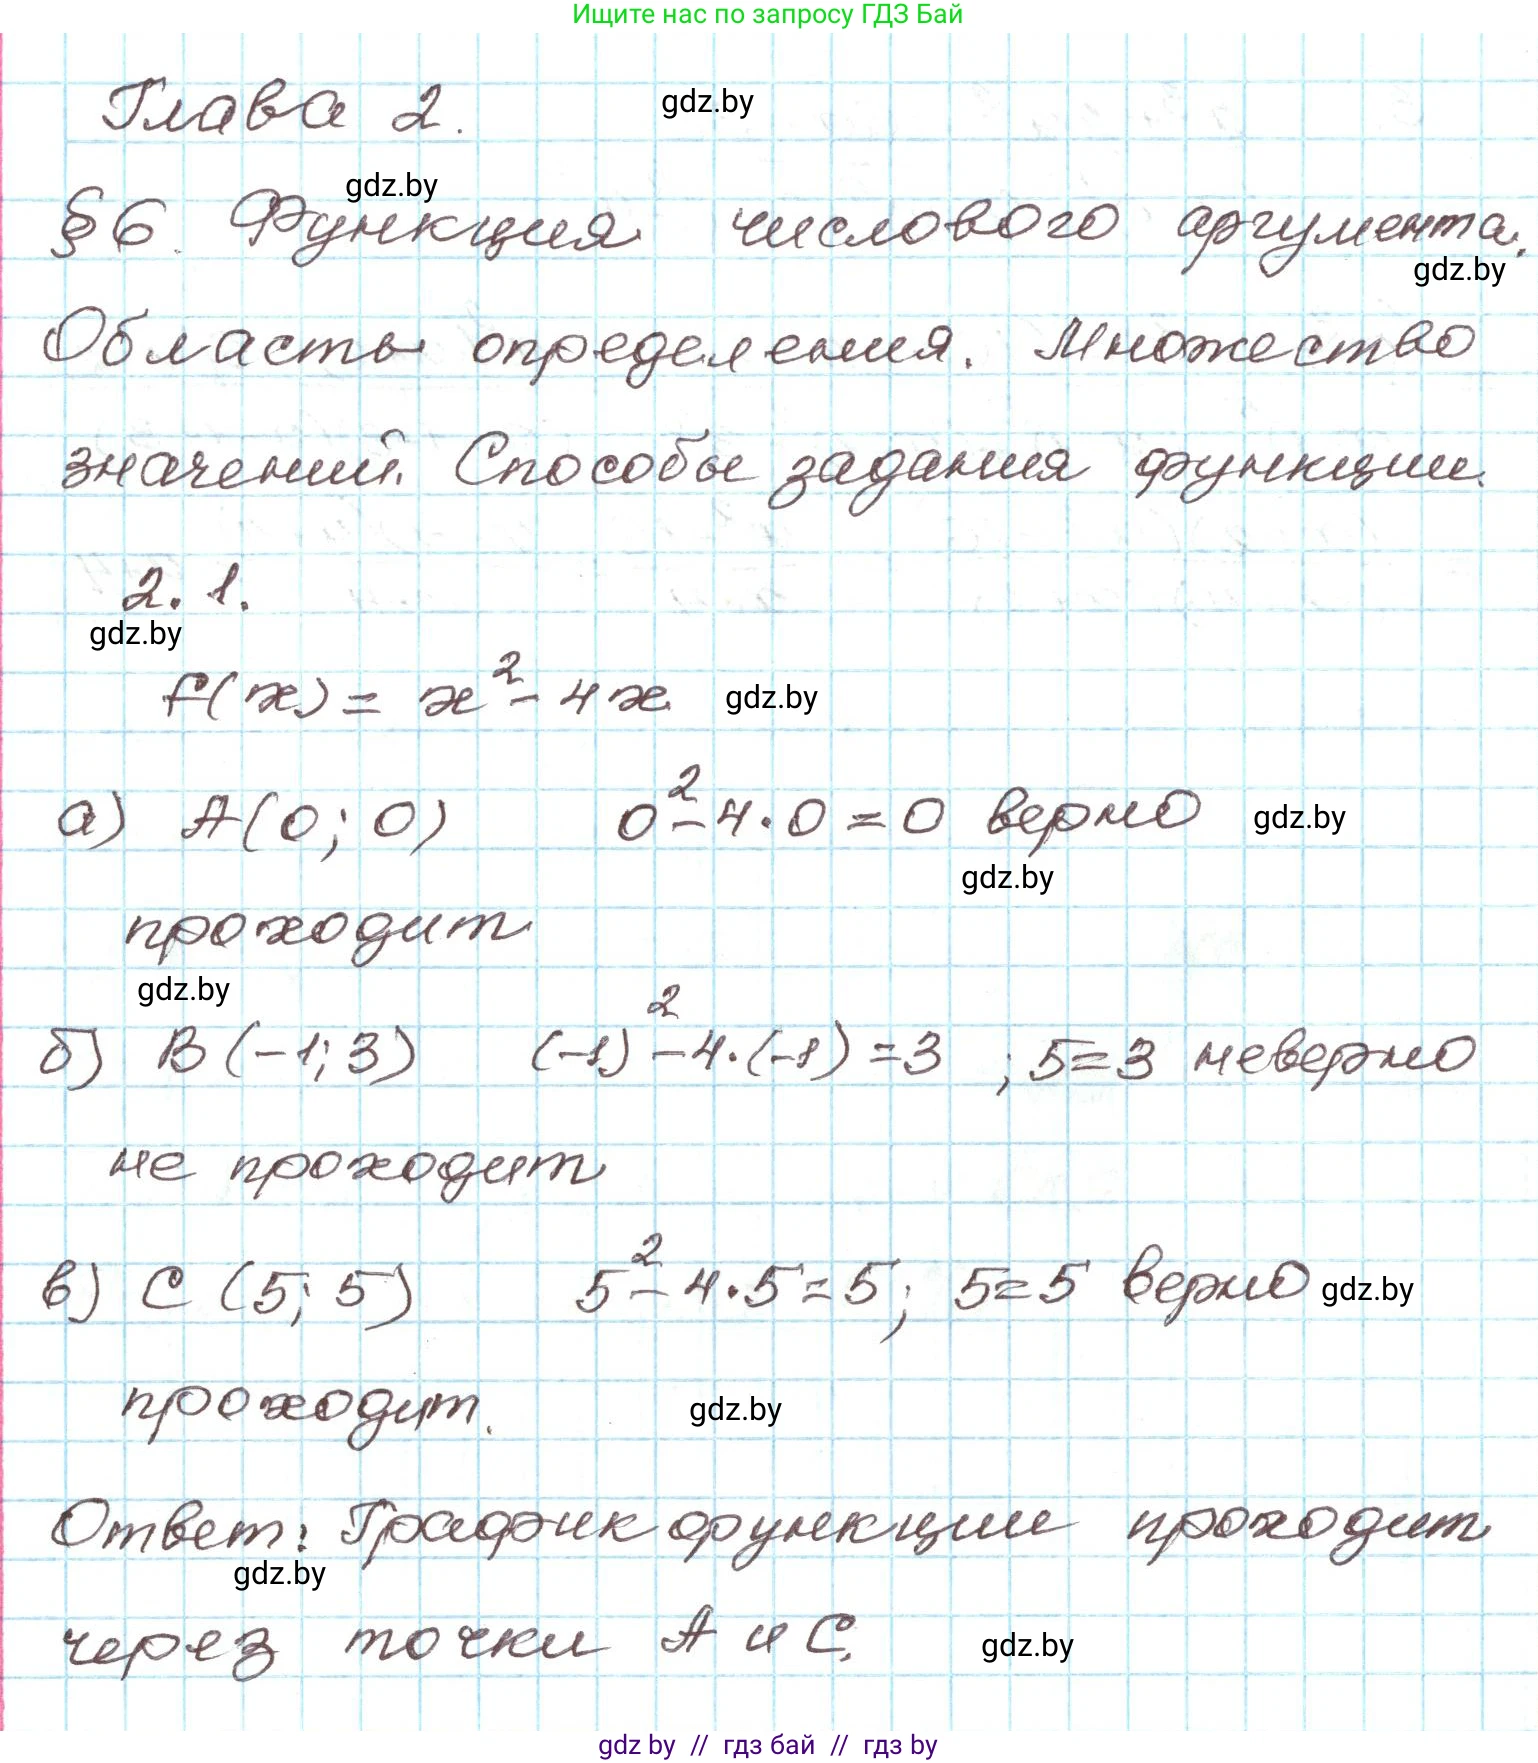 Ищите нас по запросу ГДЗ Бай
Глава 2. gdz.by
gdz.by
§6. Функция числового аргумента.
gdz.by
Область определения. Множество
значений. Способы задания функции.
2.1.
gdz.by
f(x) = x² - 4x gdz.by
а) A(0; 0) 0² - 4·0 = 0 верно gdz.by
gdz.by
проходит
gdz.by
б) B(-1; 3) (-1)² - 4·(-1) = 3 ; 5=3 неверно
не проходит
в) C (5; 5) 5² - 4·5 = 5; 5=5 верно gdz.by
проходит. gdz.by
Ответ: График функции проходит
gdz.by
через точки A и C. gdz.by
gdz by // гдз бай // гдз by